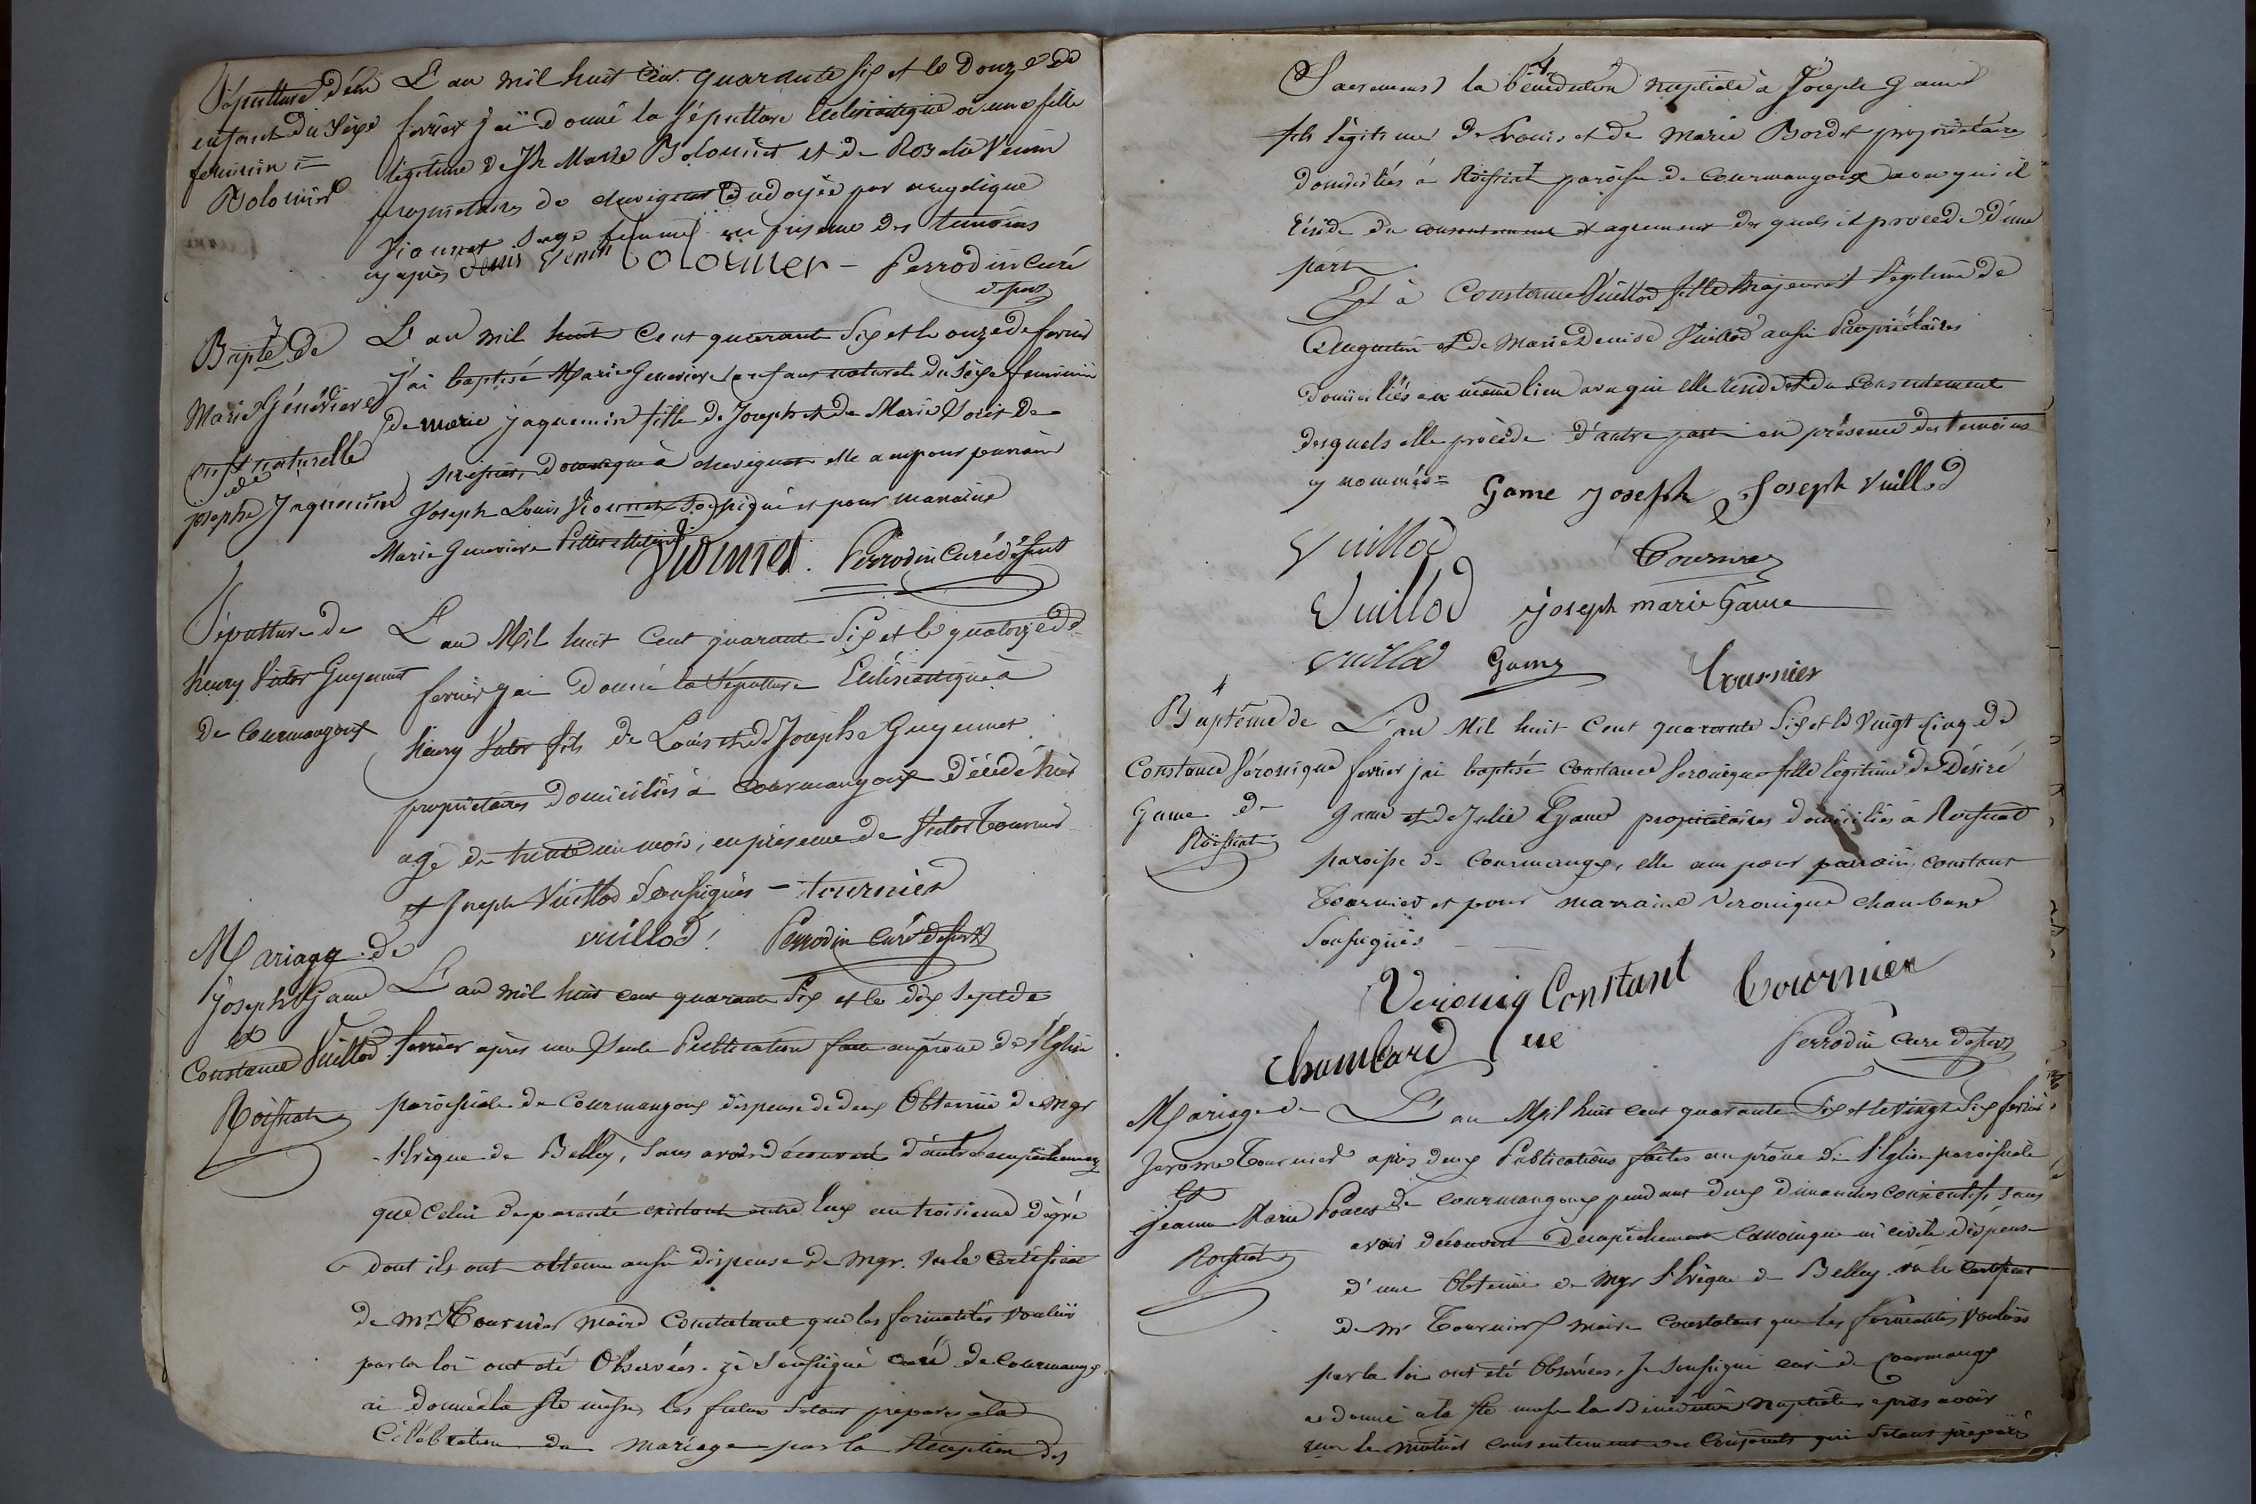 Sépulture d'un
enfant du sexe
feminin =
Bolomier
L'an mil huit cent quarante six et le douze de
fevrier j'ai donné la sépulture Eclésiastique à une fille
légitime de Jh Marie Bolomier et de Rosalie Venin
propriétaires de chevignat ondoyée par angelique
Vionnet sage femme en présence des temoins
cy après Denis Venin bolomier – Perrodin curé
desert
Baptê de
Marie Généviève
enft naturelle
de
josephe Jaquemin
L'an mil huit cent quarante six et le onze de fevrier
j'ai baptisé Marie Genevieve enfant naturele du sexe feminin
de marie jaquemin fille de Joseph et de Marie
domestique à chevignat elle a eu pour parrain
Joseph Louis Vionnet Soussigné et pour maraine
Marie Genevieve
Vionnet. Perrodin curé desert
Sépulture de
henry Victor Guyennet
de Courmangoux
L'an Mil huit cent quarante six et le quatorze de
fevrier j'ai donné la sépulture Eclésiastique à
henry Victor fils de Louis et de Josephe Guyennet
propriétaires domiciliés à Courmangoux décédé hier
agé de trente un mois, en présence de Victor Tournier
et Joseph Vuillod Soussignés – tournier
vuillod! Perrodin curé desert
Mariage de
joseph Game
et
Constance Vuillod
Roissiat
L'an mil huit cent quarante six et le dix sept de
fevrier après une seule Publication faite au prône de l'Eglise
paroissiale de Courmangoux dispense de deux Obtenue de mgr
l'Evêque de Belley, sans avoir découvert d'autre empêchement
que celui de parenté existant entre eux au troisieme dégré
dont ils ont obtenu aussi dispense de mgr. vu le certificat
de Mr Tournier maire constatant que les formalités voulues
par la loi ont été Observées. je soussigné curé de Courmangx
ai donné à la Ste messe, les futurs s'étant préparés à la
Célébration du mariage par la Réception des
4
Sacremens) la bénédiction nuptiale à Joseph Game
fils légitime de Louis et de Marie Bordet propriétaires
domiciliés à Roissiat paroisse de Courmangoux avec qui il
réside du consentement et agrement des quels il procède d'une
part
Et à Constance Vuillod fille majeure et légitime de
Augustin et de Marie Denise Vuillod aussi Propriétaires
domiciliés au même lieu avec qui elle reside et du consentement
desquels elle procède d'autre part en présence des temoins
cy nommés=
Game joseph Joseph Vuillod
Vuillod Tournier
Vuillod joseph marie Game
vuillod Game Tournier
Baptême de
Constance Véronique
Game de
Roissiat
L'an Mil huit cent quarante six et le vingt cinq de
fevrier j'ai baptisé Constance Veronique fille légitime de Désiré
Game et de Julie Game propriétaires domiciliés à Roissiat
paroisse de Courmangx, elle a eu pour parrain constant
Tournier et pour marraine Veronique chambard
Soussignés
Veroniq Constant Tournier
ue
Chambard
Perrodin curé desert
Mariage de
Jerome Tournier
et
jeanne Marie
Roissiat
L'an Mil huit cent quarante six et le vingt six fevrier
après deux Publications faites au prône de l'Eglise paroissiale
de Courmangoux pendant deux dimanches consécutifs, sans
avoir découvert d'empêchement canonique ni civile dispense
d'une Obtenue de mgr l'Evêque de Belley vu le certificat
de Mr Tournier maire constatant que les formalités voulues
par la loi ont été Observées, je soussigné curé de Courmangx
ai donné à la Ste messe la Bénédiction Nuptiale après avoir
reçu le mutuel consentement des Conjoints qui s'étant préparés